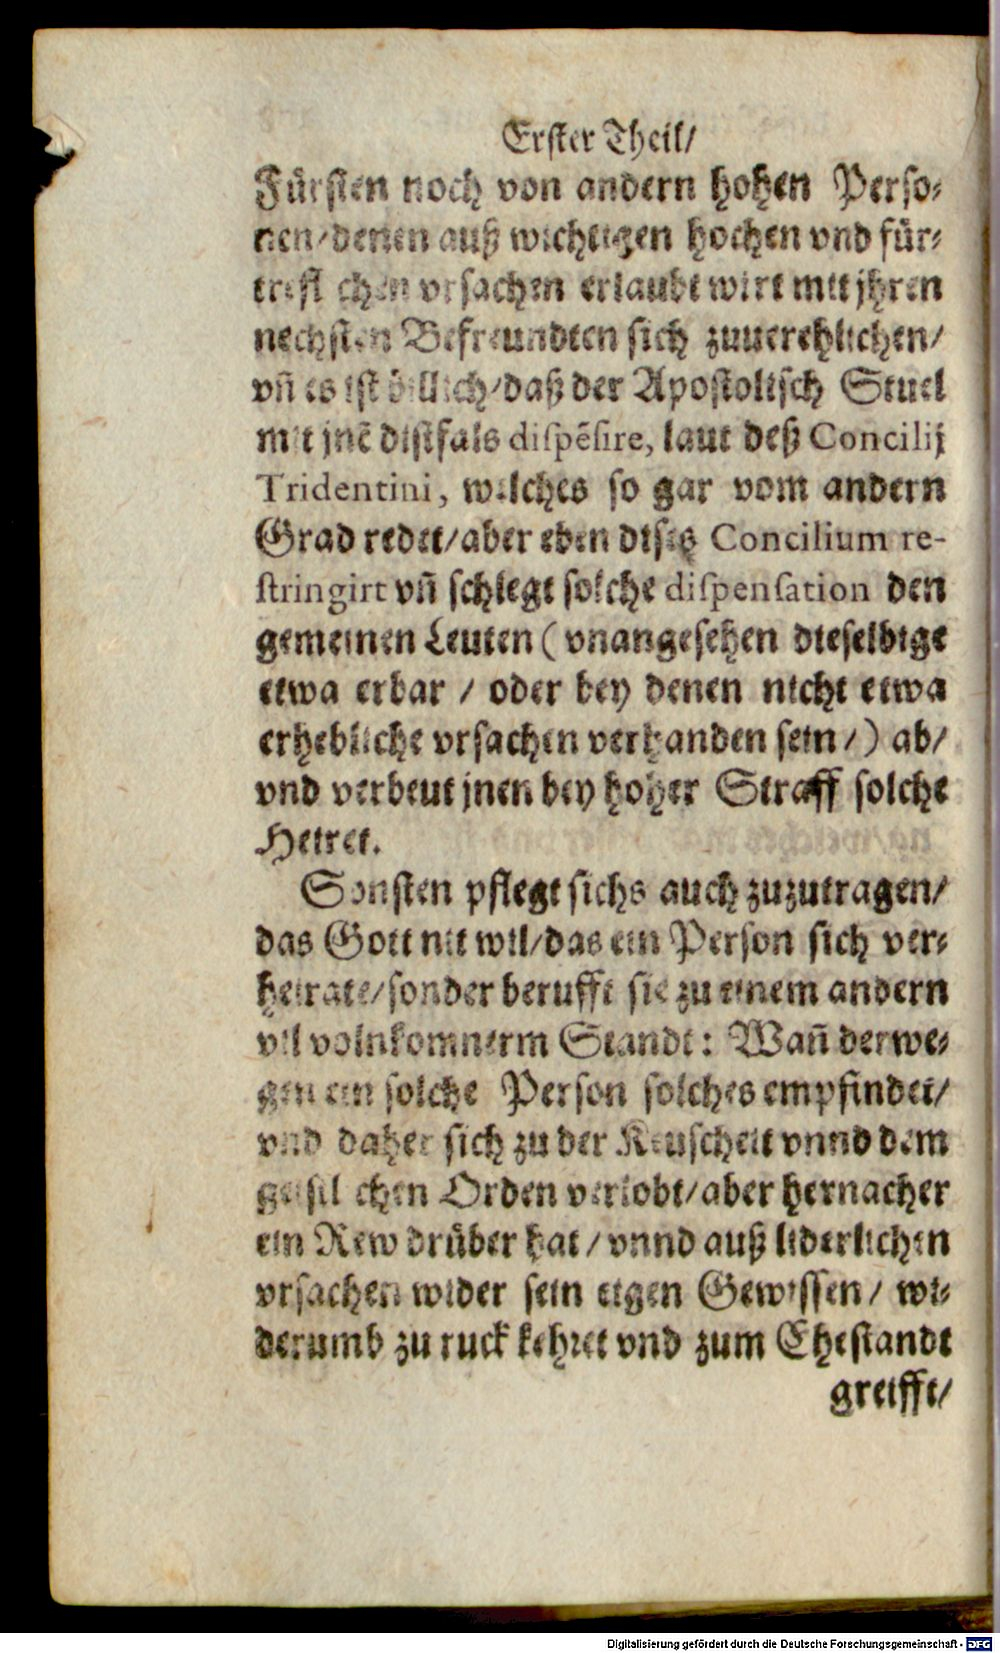 Erster Theil/
Fürsten noch von andern hohen Perso⸗
nen/denen auß wichtigen hochen vnd für⸗
trefl chen vrsachen erlaubt wirt mit jhren
nechsten Befreundten sich zuuerehlichen/
vñ es ist billich/daß der Apostolisch Stuel
mit jnē dißfals diſpēſire, laut deß Concilij
Tridentini, welches so gar vom andern
Grad redet/aber eben dises Concilium re-
ſtringirt vñ schlegt solche diſpenſation den
gemeinen Leuten (vnangesehen dieselbige
etwa erbar / oder bey denen nicht etwa
erhebliche vrsachen verhanden sein/) ab/
vnd verbeut jnen bey hoher Straff solche
Heiret.
Sonsten pflegt sichs auch zuzutragen/
das Gott nit wil/das ein Person sich ver⸗
heirate/sonder berufft sie zu einem andern
vil volnkomnerm Standt: Wañ derwe⸗
gen ein solche Person solches empfindet/
vnd daher sich zu der Keuscheit vnnd dem
geistl chen Orden verlobt/aber hernacher
ein Rew drüber hat/vnnd auß liderlichen
vrsachen wider sein eigen Gewissen/ wi⸗
derumb zu ruck kehret vnd zum Ehestandt
greifft/
Digitalisierung gefördert durch die Deutsche Forschungsgemeinschaft - DFG